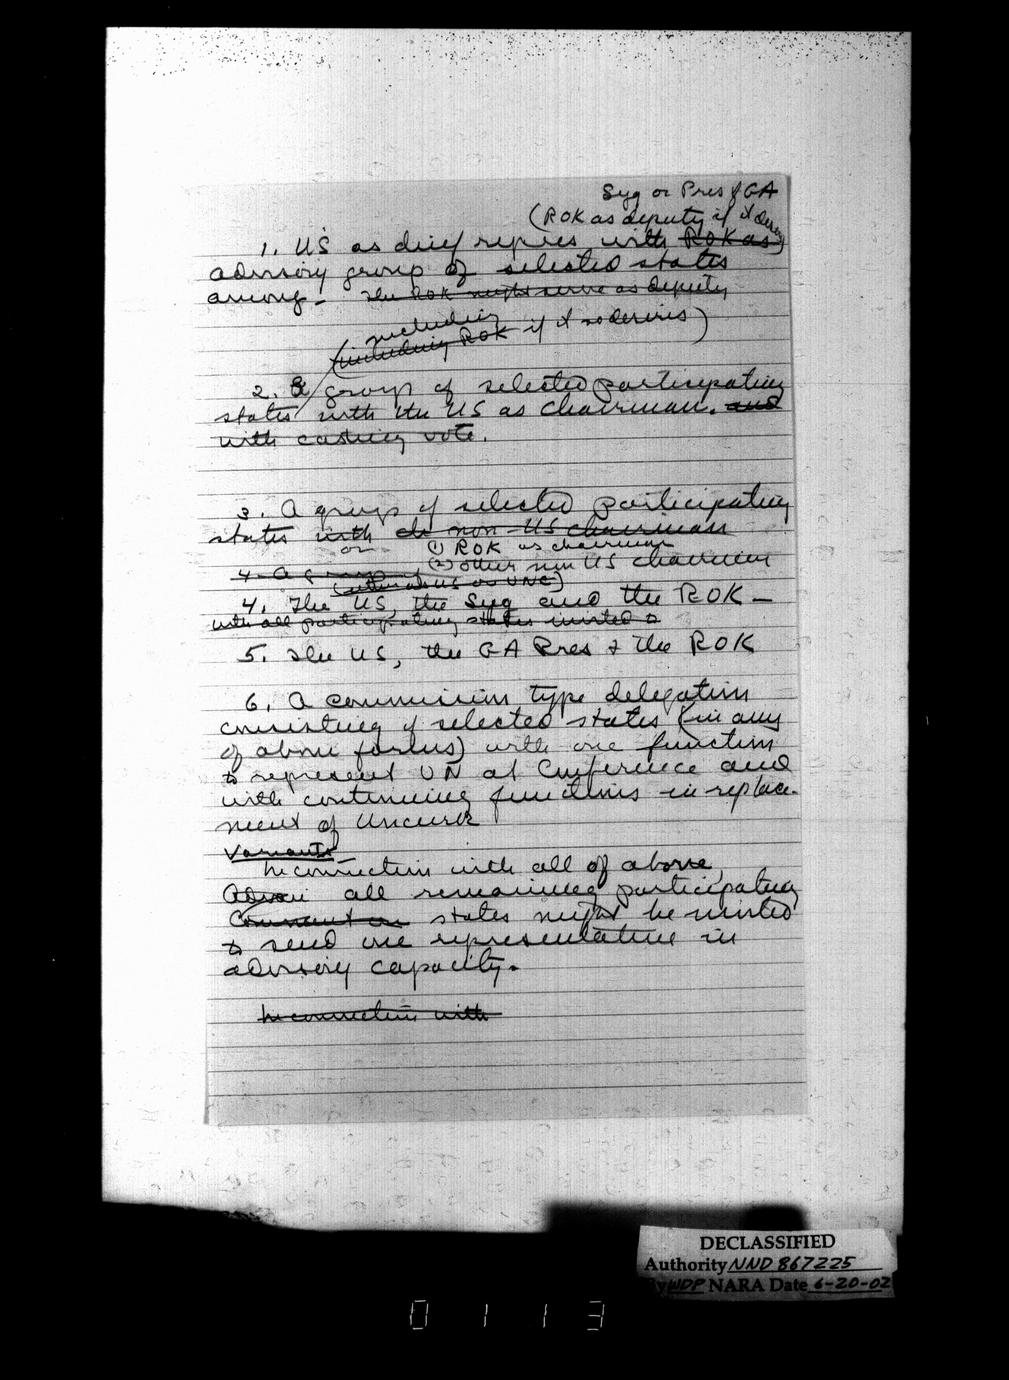 Syg or Pres of GA
(ROK as deputy if it desires)
1. US as chief repres with ROK as
advisory group of selected states
among - The ROK might serve as deputy
including
(including ROK if it so desires)
2. A group of selected participating
states with the US as chairman. and
with casting vote.
3. A group of selected participating
states with non-US chairman
or (1) ROK as chairman
4. A group (2) other non US chairman
4. The US, the Syg and the ROK -
with all participating states invited to
5. The US, the GA Pres & the ROK
6. A commission type delegation
consisting of selected states (in any
of above forms) with one function
to represent UN at Conference and
with continuing functions in replace-
ment of Uncurk
Variants -
In connection with all of above,
all remaining participating
Comment on states might be invited
to send one representative in
advisory capacity.
In connection with
DECLASSIFIED
Authority NND 867225
By WDP NARA Date 6-20-02
0113